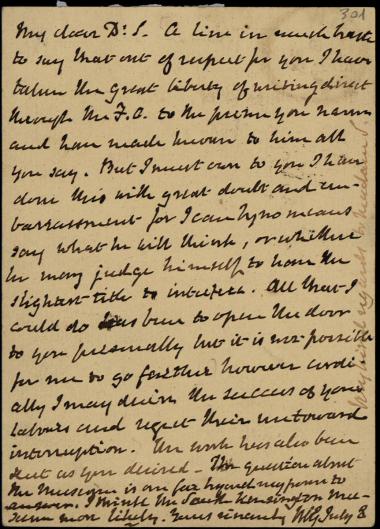 301
My dear Dr. S. A line in much haste
to say that out of respect for you I have
taken the great liberty of writing direct
through the F.O. to the person you name
and have made known to him all
you say. But I must own to you I have
done this with great doubt and em-
barrassment for I can by no means
say what he will think, or whether
he may judge himself to have the
slightest title to interfere. All that I
could do has been to open the door
to you personally but it is not possible
for me to go farther however cordi-
ally I may desire the success of your
labours and regret their untoward
interruption. The work has also been
sent as you desired - The question about
the Museum is one far beyond my power to
answer. I think the South Kensington Mu-
seum most likely. Yours sincerely WEG July 3
regards to Madame S